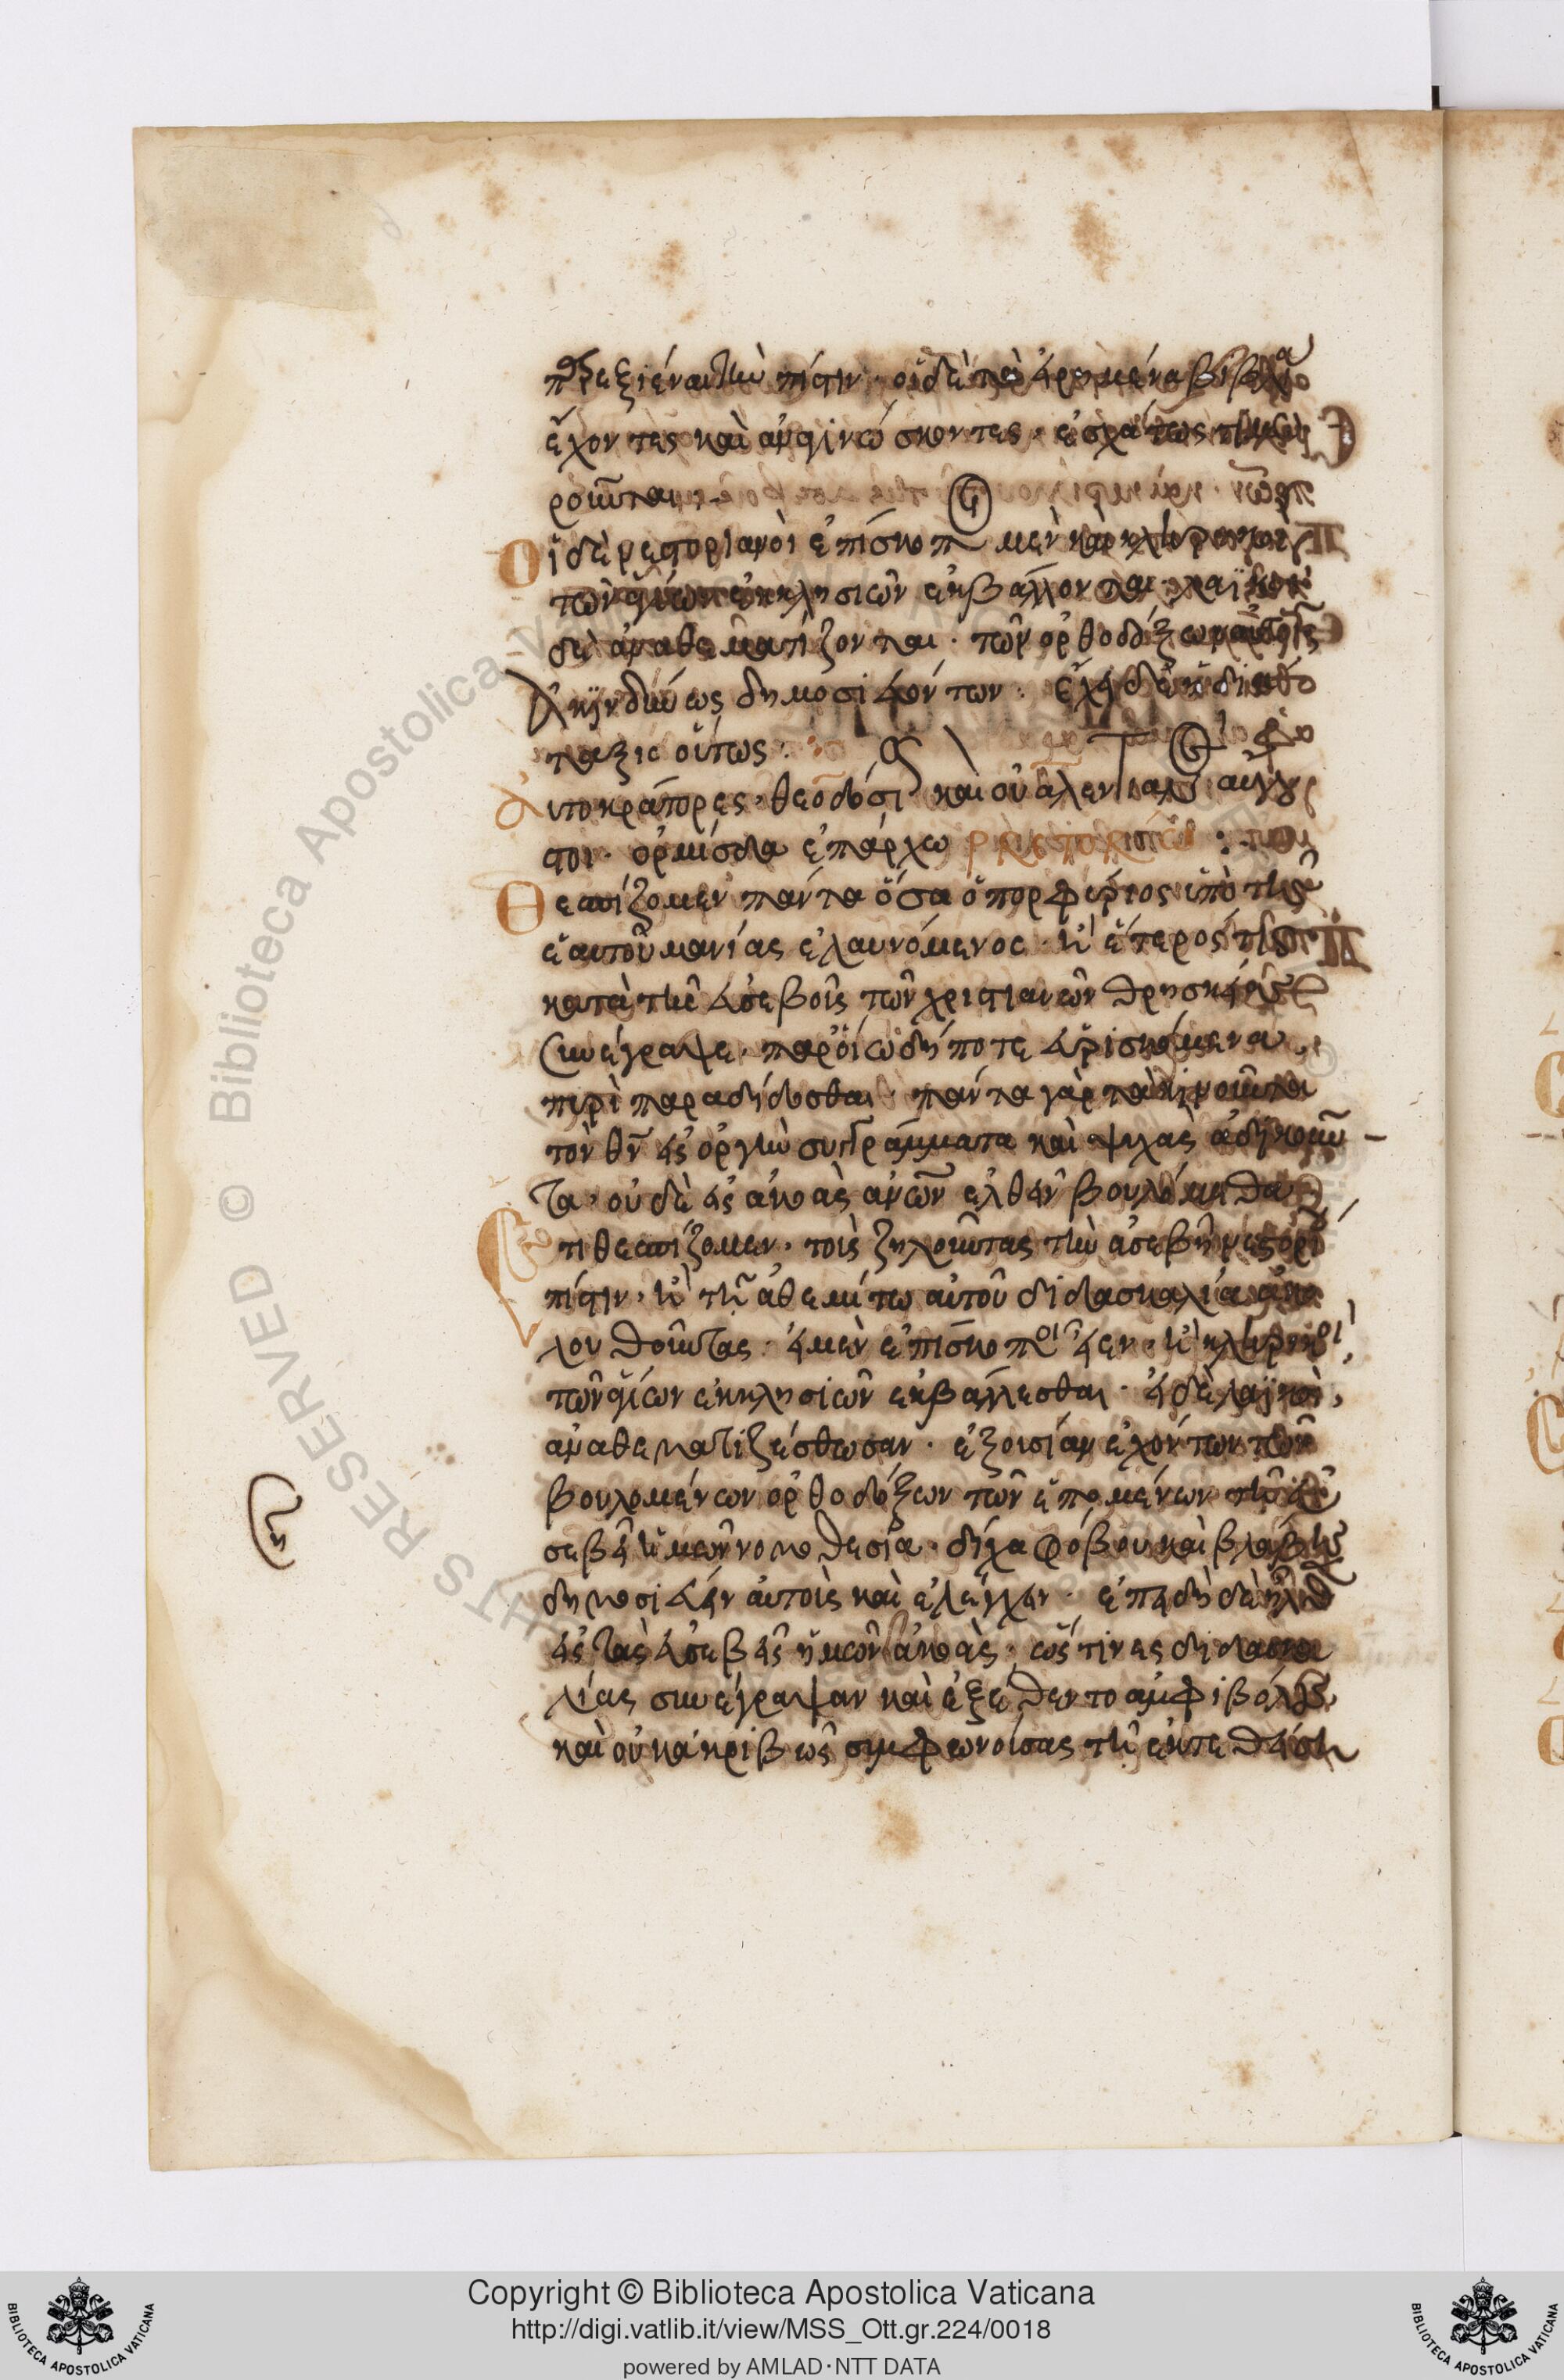 παρεξιέναι τὴν πίστιν· οἱ δὲ τὰ εἰρημένα βιβλία
ἔχοντες καὶ ἀναγινώσκοντες· ἐσχάτως τιμω
ροῦνται
Οἱ δὲ νεστοριανοὶ ἐπίσκοποι μὲν καὶ κληρικοὶ
τῶν ἁγίων ἐκκλησιῶν ἐκβάλλονται· λαϊκοὶ
δὲ ἀναθεματίζονται· τῶν ὀρθοδόξων αὐτοὺς
ἀκινδύνως δημοσιευόντων· ἔχει δὲ ἡ διά
ταξις οὕτως·
Αὐτοκράτορες· θεοδόσιος καὶ οὐαλεντιανὸς αὔγου
στοι· ὁρμίσδα ἐπάρχω
Θεσπίζομεν πάντα ὅσα ὁ πορφύριος ὑπὸ τῆς
ἑαυτοῦ μανίας ἐλαυνόμενος· ἢ ἕτερός τις
κατὰ τῆς εὐσεβοῦς τῶν χριστιανῶν θρησκείας
συνέγραψε· παρ' οἱωδήποτε εὑρισκόμενα,
πυρὶ παραδίδοσθαι· πάντα γὰρ τὰ κινοῦντα
τὸν θν εἰς ὀργὴν συγγράμματα καὶ ψυχὰς ἀδικοῦν
τα· οὐδὲ εἰς ἀκοὰς ανων ἐλθεῖν βουλόμεθα
Ἔτι θεσπίζομεν· τοὺς ζηλοῦντας τὴν ἀσεβῆ νεστορίου
πίστιν· ἢ τῆ ἀθεμίτω αὐτοῦ διδασκαλία ἀκο
λουθοῦντας· εἰ μὲν ἐπίσκοποι εἶεν· ἢ κληρικοὶ,
τῶν ἁγίων ἐκκλησιῶν ἐκβάλλεσθαι· εἰ δὲ λαϊκοὶ,
ἀναθεματιζέσθωσαν· ἐξουσίαν ἐχόντων τῶν
βουλομένων ὀρθοδόξων τῶν ἑπομένων τῆ εὐ
σεβεῖ ἡμῶν νομοθεσία· δίχα φόβου καὶ βλάβης
δημοσιεύειν αὐτοὺς καὶ ἐλέγχειν· ἐπειδὴ δὲ ἦλθεν
εἰς τὰς εὐσεβεῖς ἡμῶν ἀκοὰς· ὥς τινες διδασκα
λίας συνέγραψαν καὶ ἐξέθεντο ἀμφιβόλους,
καὶ οὐκ ἀκριβῶς συμφωνούσας τῆ ἐκτεθείση
Copyright © Biblioteca Apostolica Vaticana
http://digi.vatlib.it/view/MSS_Ott.gr.224/0018
powered by AMLAD·NTT DATA